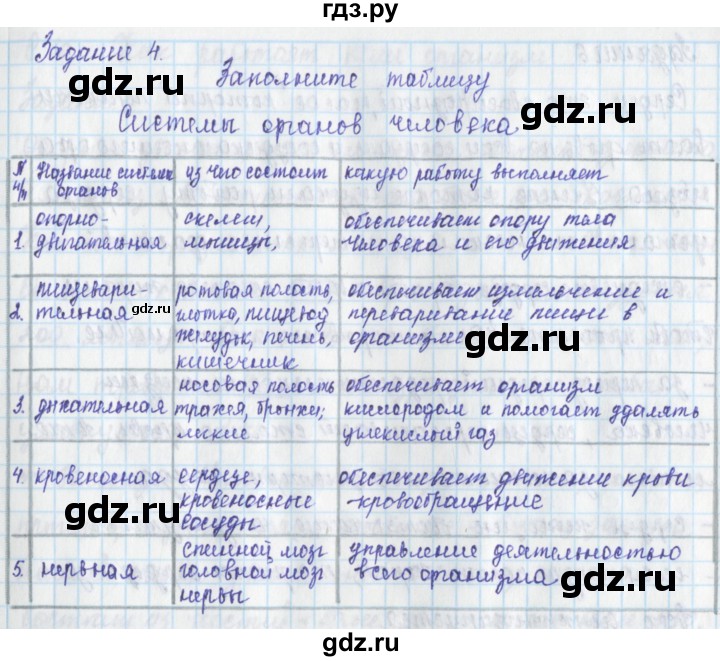 гдз.ру
Задание 4.
Заполните таблицу
Системы органов человека
№ п/п Название системы органов из чего состоит какую работу выполняет
1. опорно-двигательная скелет, мышцы, обеспечивает опору тела человека и его движения
2. пищеварительная ротовая полость, глотка, пищевод желудок, печень, кишечник обеспечивает измельчение и переваривание пищи в организме
3. дыхательная носовая полость трахея, бронхи, легкие обеспечивает организм кислородом и помогает удалять углекислый газ
4. кровеносная сердце, кровеносные сосуды обеспечивает движение крови -кровообращение
5. нервная спинной мозг головной мозг нервы управление деятельностью всего организма
gdz.ru
gdz.ru
gdz.ru
gdz.ru
gdz.ru
gdz.ru
gdz.ru
gdz.ru
gdz.ru